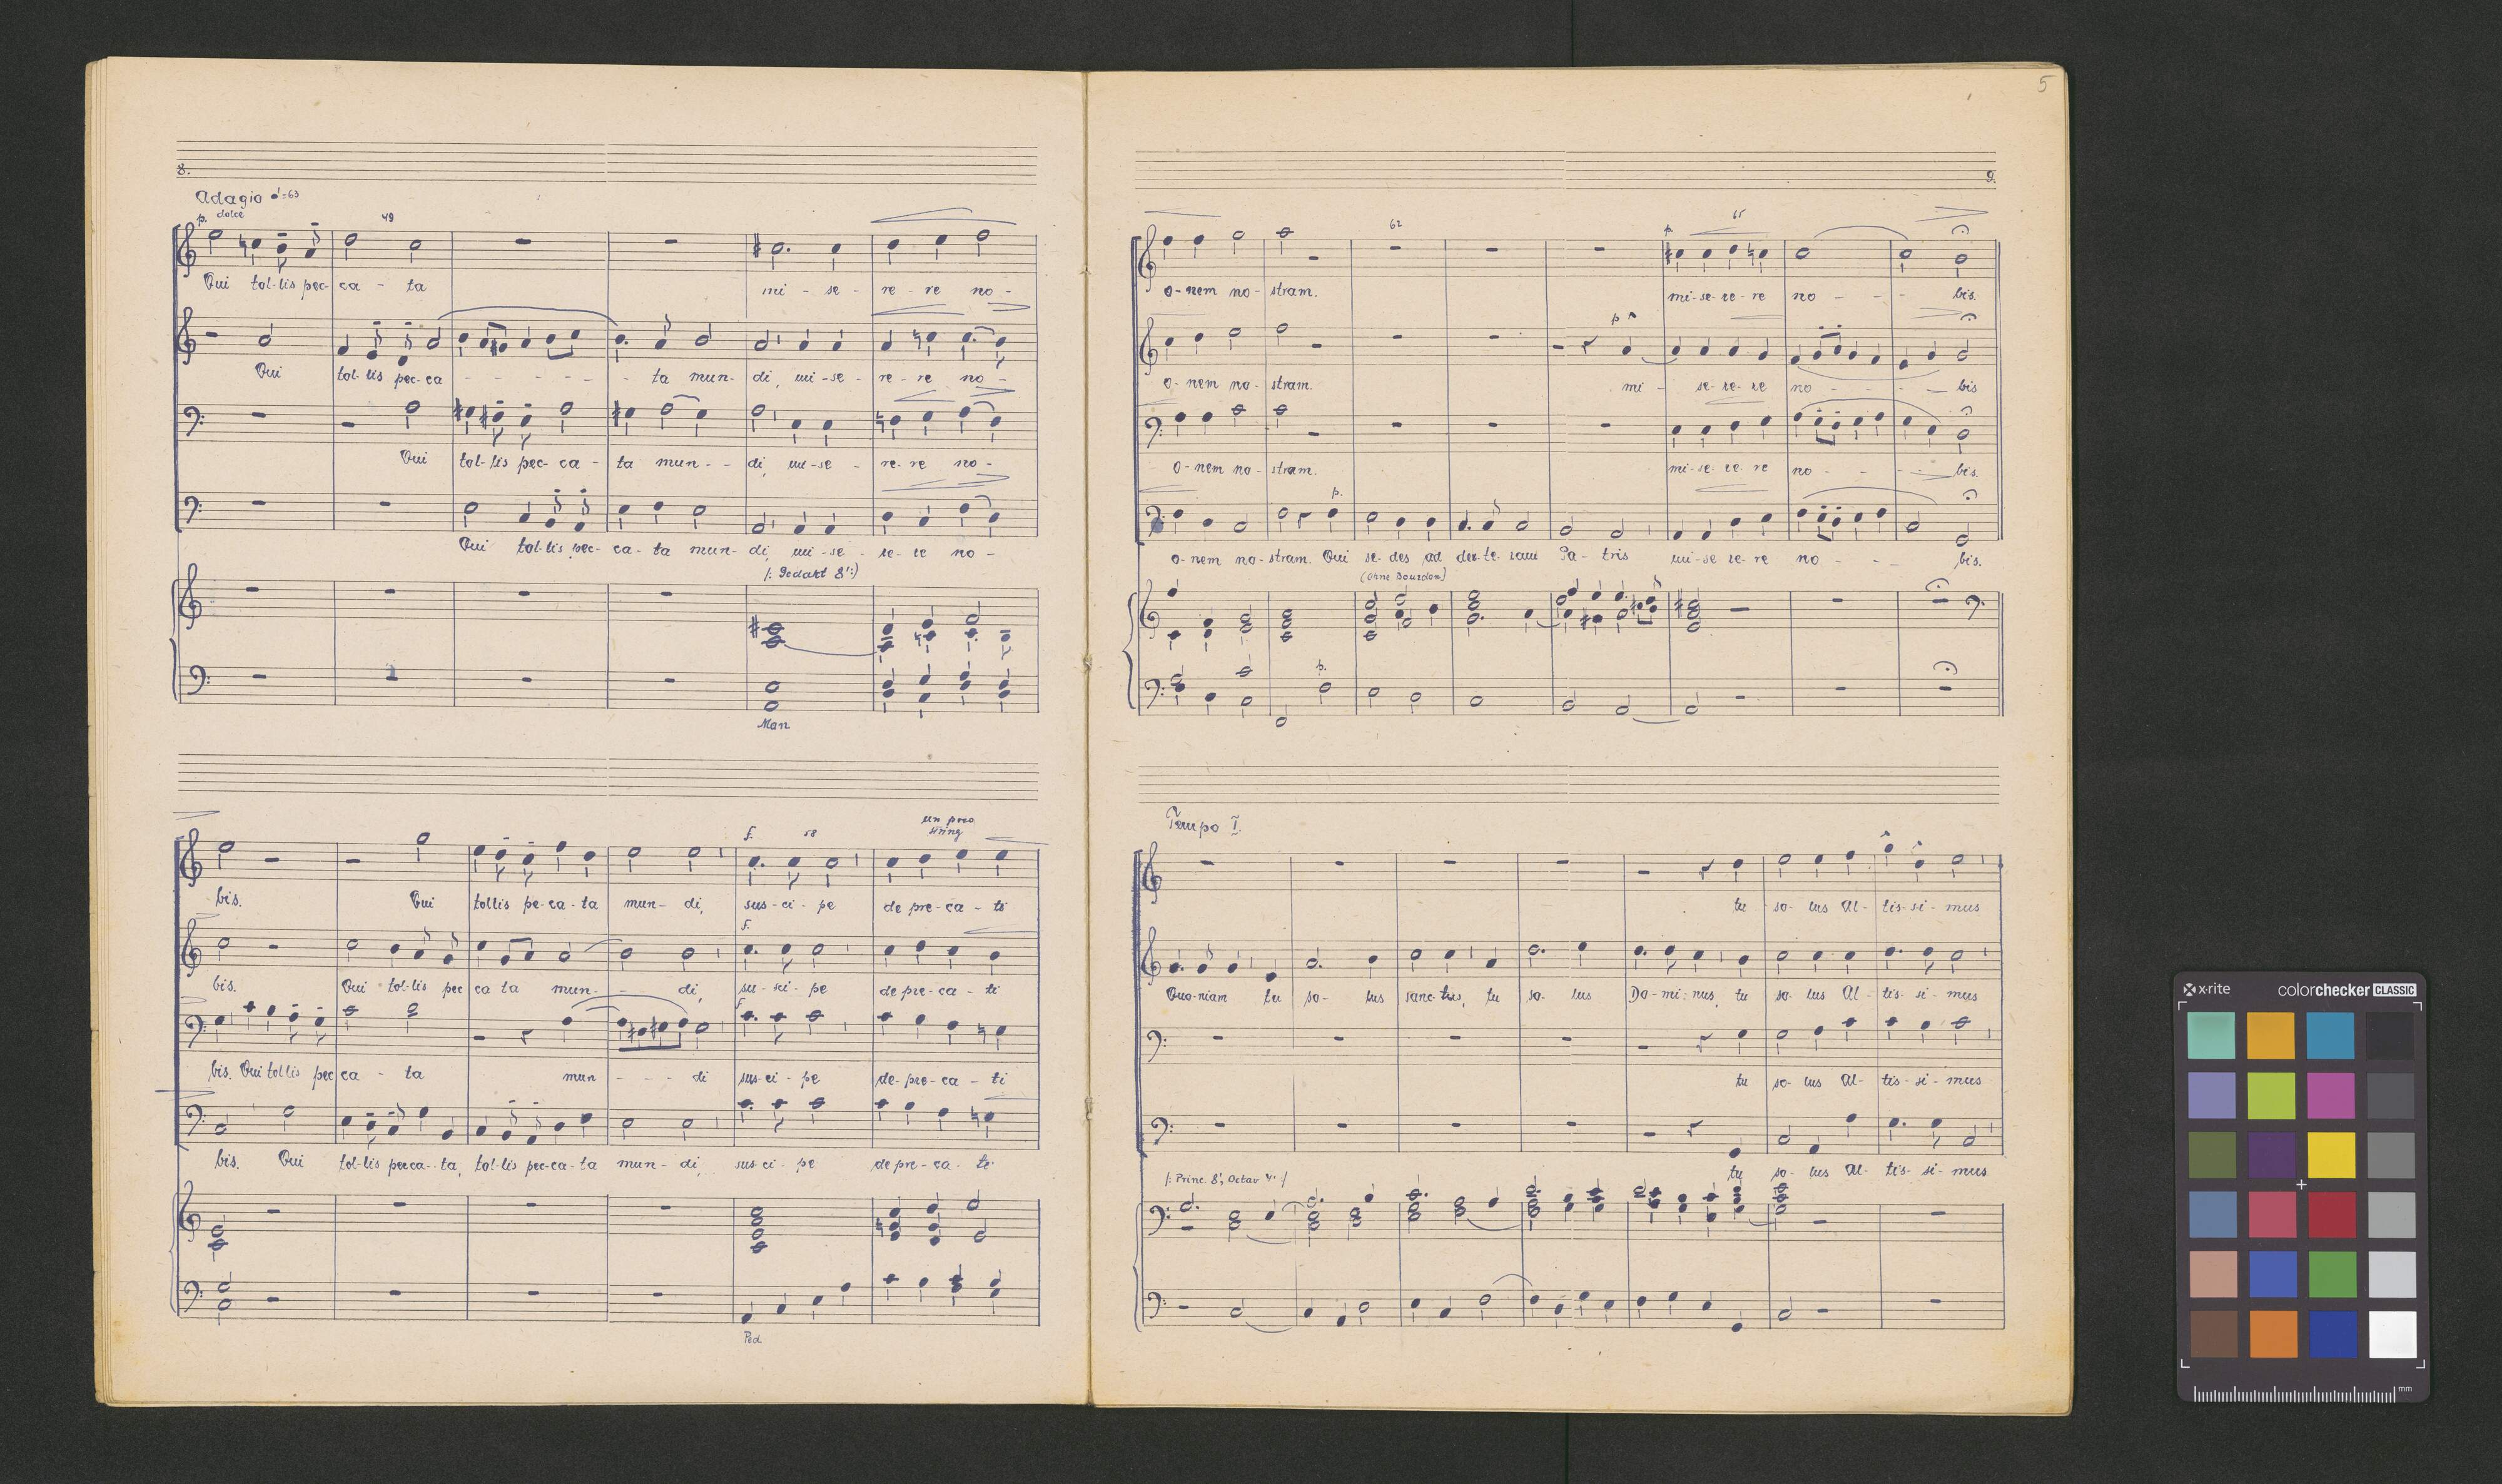 8.
Adagio ♩=63
p. dolce
49
Qui tol-lis pec- ca - ta mi - se - re - re no -
Qui tol-lis pec-ca - - - - - - ta mun- di, mi-se - re-re no -
Qui tol-lis pec-ca - ta mun - - di, mi-se - re-re no -
Qui tol-lis pec- ca-ta mun- di, mi-se - re-re no -
/: Gedakt 8':)
Man
un poco
string
f. 58
bis. Qui tollis pe-ca-ta mun- di, sus-ci-pe de pre-ca-ti
f.
bis. Qui tol-lis pec ca ta mun- - di, su-sci-pe de pre-ca-ti
f.
bis. Qui tol lis pec ca - ta mun - - - di sus-ci-pe de-pre-ca-ti
bis. Qui tol-lis pecca-ta, tol-lis pec-ca-ta mun-di, sus-ci-pe de pre-ca-ti
Ped
5
9.
62
p 65
o-nem no-stram. mi-se-re-re no - - - bis.
p
o-nem no-stram. mi - se-re-re no - - - - bis
o-nem no-stram. mi-se-re-re no - - - - bis.
p.
o-nem no-stram. Qui se-des ad dex-te-ram Pa-tris mi-se re-re no - - - bis.
(Ohne Bourdon)
p.
Tempo I.
tu so-lus Al-tis-si-mus
Quo-niam tu so-lus sanc-tus, tu so-lus Do-mi-nus, tu so-lus Al-tis-si-mus
tu so-lus Al-tis-si-mus
tu so-lus Al-tis-si-mus
/: Princ. 8', Octav 4' :/
x-rite
colorchecker CLASSIC
mm